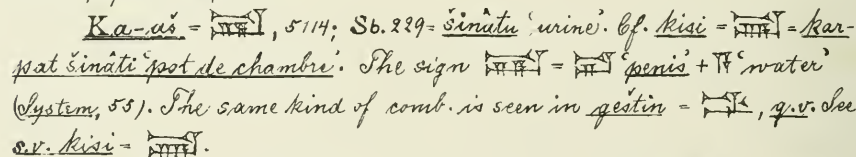 Ka-aš = , 5114; Sb. 229 = šinâtu 'urine'. Cf. kisi = = kar-
pat šinâti 'pot de chambre'. The sign = 'penis' + 'water'
(System, 55). The same kind of comb. is seen in geštin = , q.v. See
s.v. kisi = .